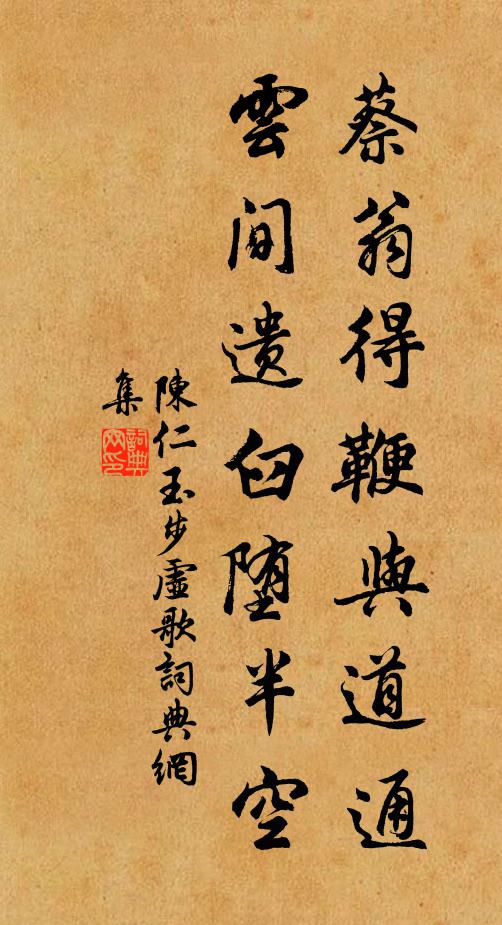 蔡翁得鞭與道通
雲間遺臼墮半空
陳仁玉步虛歌詞典網
集
詞典
網印